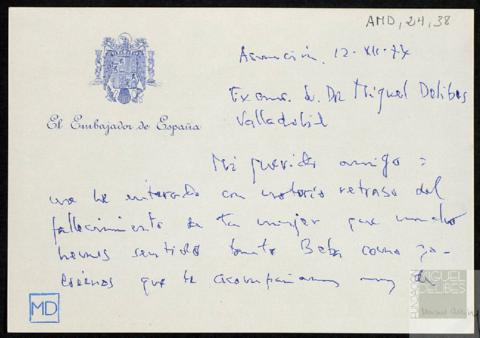 AMD, 24, 38
Asunción, 12-XII-74
Excmo. Sr. Dn Miguel Delibes
Valladolid
El Embajador de España
Mi querido amigo:
me he enterado con notorio retraso del
fallecimiento de tu mujer que mucho
hemos sentido tanto Beba como yo.
que te acompañamos muy de
MD
MIGUEL
DELIBES